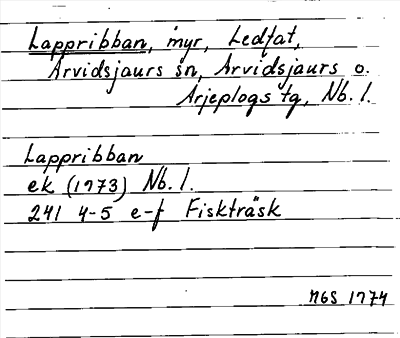 Lappribban, myr, Ledfat,
Arvidsjaurs sn, Arvidsjaurs o.
Arjeplogs tg, Nb. l.
Lappribban
ek (1973) Nb. l.
241 4-5 e-f Fiskträsk
NGS 1974